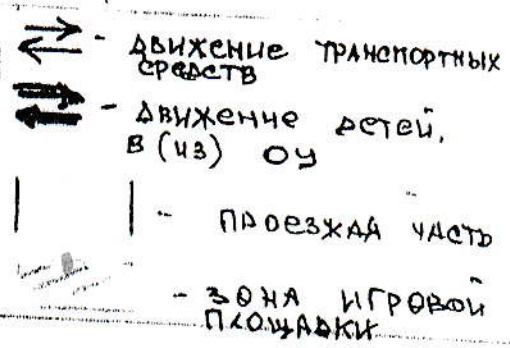 - ДВИЖЕНИЕ ТРАНСПОРТНЫХ
СРЕДСТВ
- ДВИЖЕНИЕ ДЕТЕЙ,
В (ИЗ) ОУ
- ПРОЕЗЖАЯ ЧАСТЬ
- ЗОНА ИГРОВОЙ
ПЛОЩАДКИ